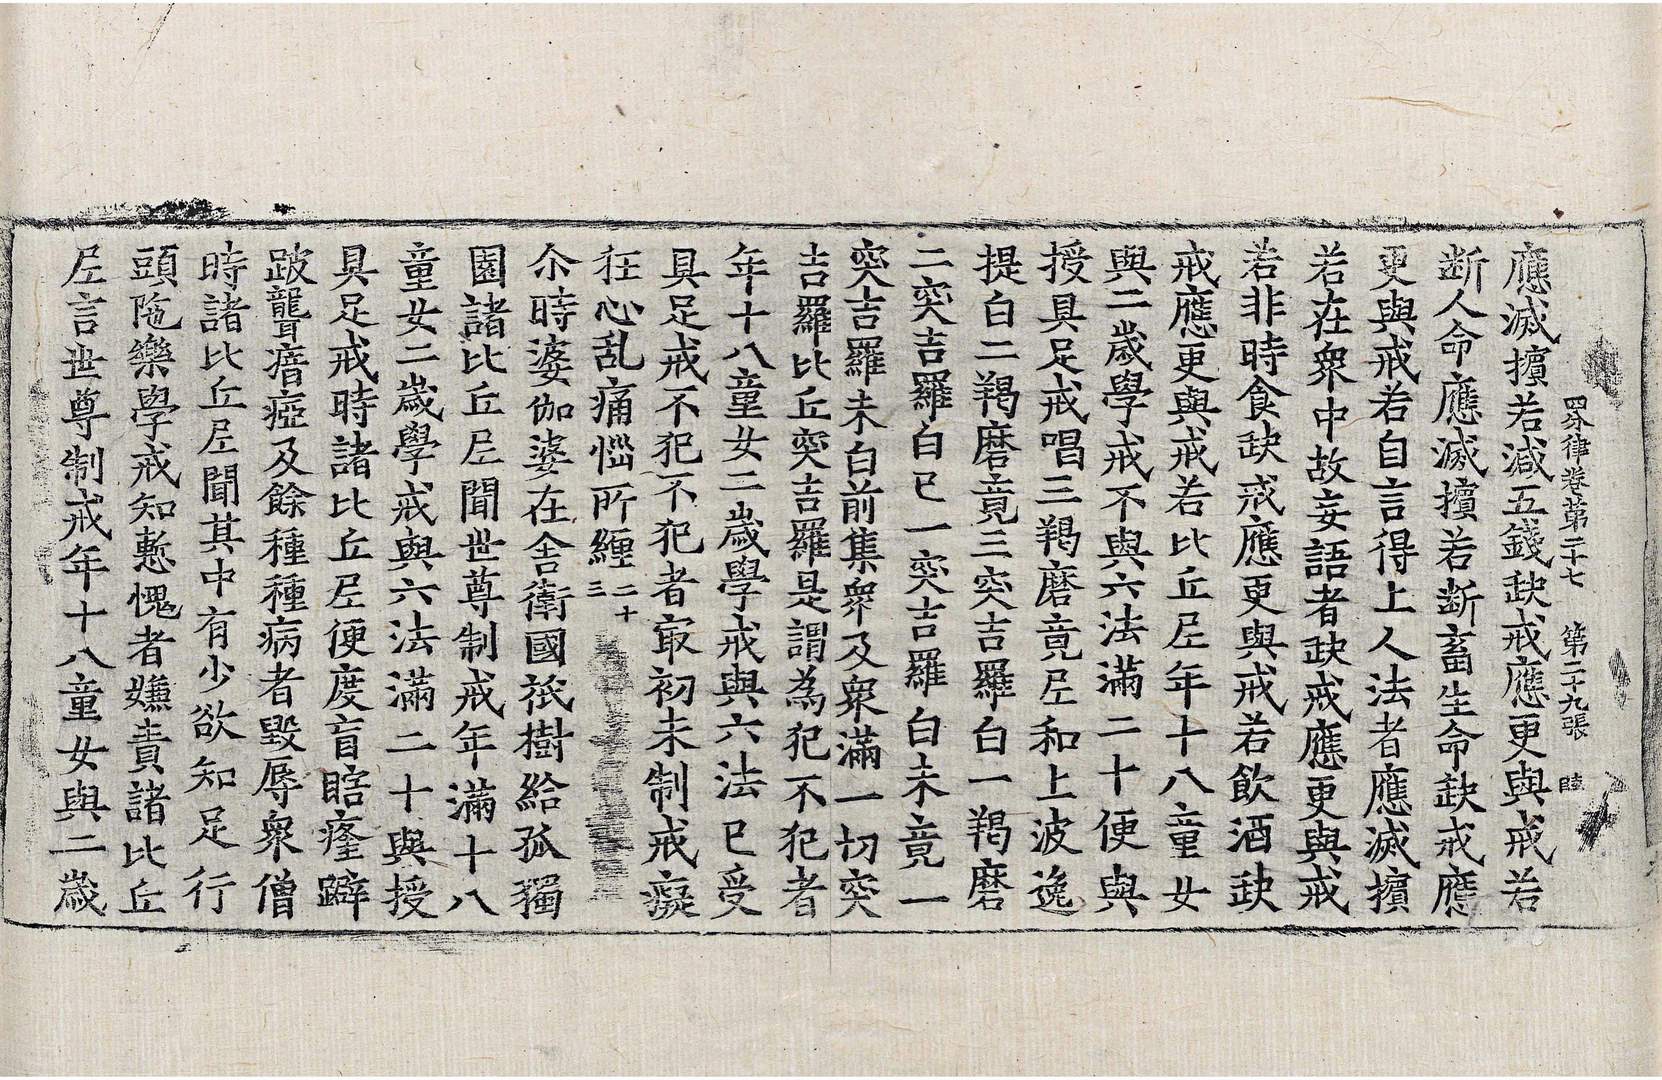 四分律卷第二十七 第二十九張 陸
應滅擯若減五錢缺戒應更與戒若
断人命應滅擯若断畜生命缺戒應
更與戒若自言得上人法者應滅擯
若在衆中故妄語者缺戒應更與戒
若非時食缺戒應更與戒若飲酒缺
戒應更與戒若比丘尼年十八童女
與二歲學戒不與六法滿二十便與
授具足戒唱三羯磨竟尼和上波逸
提白二羯磨竟三突吉羅白一羯磨
二突吉羅白已一突吉羅白未竟一
突吉羅未白前集衆及衆滿一切突
吉羅比丘突吉羅是謂為犯不犯者
年十八童女二歲學戒與六法已受
具足戒不犯不犯者㝡初未制戒癡
狂心乱痛惱所纏二十三
尒時婆伽婆在舍衛國祇樹給孤獨
園諸比丘尼聞世尊制戒年滿十八
童女二歲學戒與六法滿二十與授
具足戒時諸比丘尼便度盲瞎癃躃
跛聾瘖瘂及餘種種病者毀辱衆僧
時諸比丘尼聞其中有少欲知足行
頭陁樂學戒知慙愧者嫌責諸比丘
尼言世尊制戒年十八童女與二歲